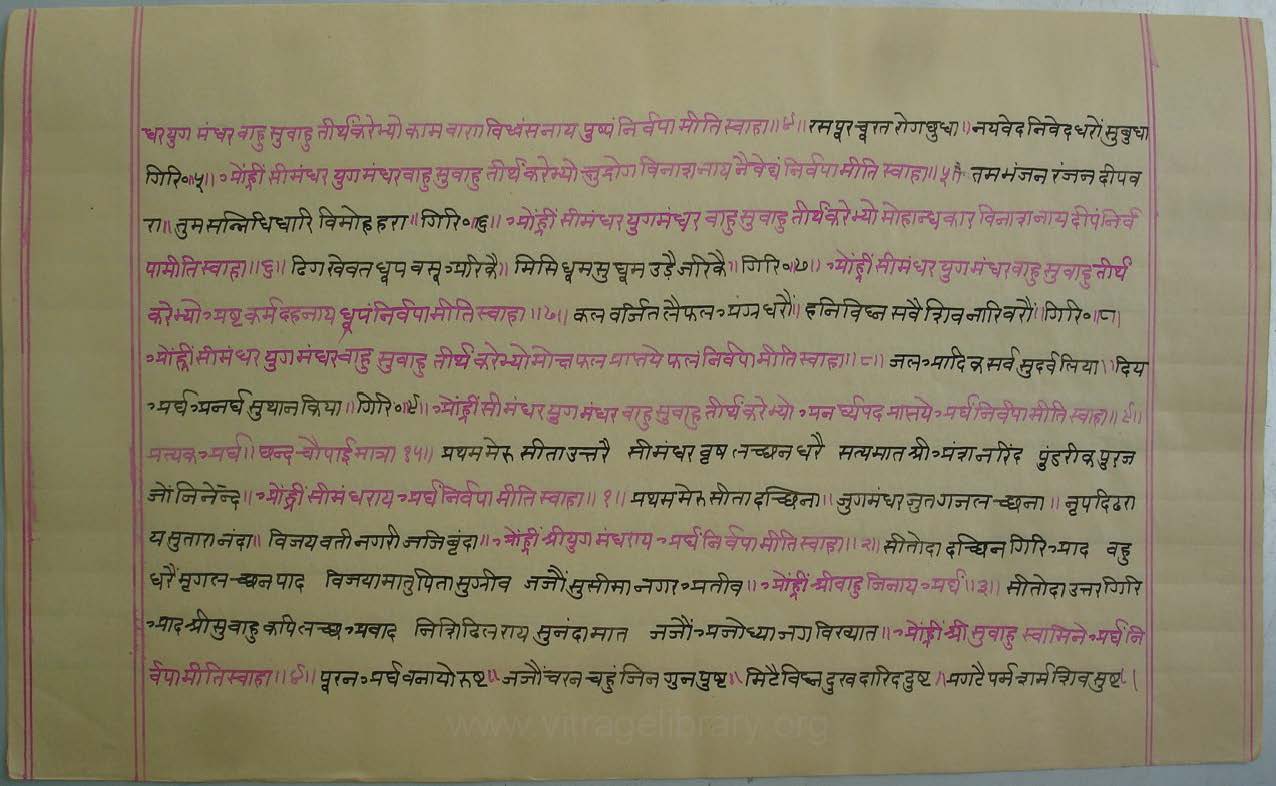 धरयुगमंधरवाहुसुवाहुतीर्थंकरेभ्यो कामवाणविध्वंसनाय पुष्पं निर्वपामीतिस्वाहा॥४॥ रसपूरचूरत रोगछुधा॥ नयवेदनिवेदधरों सुबुधा
गिरि॰॥५॥ ॐह्रीं सीमंधरयुगमंधरवाहुसुवाहुतीर्थंकरेभ्यो क्षुद्रोगविनाशनाय नैवेद्यं निर्वपामीतिस्वाहा॥५॥ तमभंजन रंजन दीपव
रा॥ तुमसन्निधिधारि विमोहहरा॥ गिरि॰॥६॥ ॐह्रीं सीमंधरयुगमंधर वाहुसुवाहुतीर्थंकरेभ्यो मोहान्धकारविनाशनाय दीपंनिर्व
पामीतिस्वाहा॥६॥ दिग खेवत धूप वसू अरिकै॥ मिसिधूमसुघूम उडै जरिकै॥ गिरि॰॥७॥ ॐह्रीं सीमंधरयुगमंधरवाहुसुवाहुतीर्थं
करेभ्यो अष्टकर्मदहनाय धूपंनिर्वपामीतिस्वाहा॥७॥ कलवर्जितलैफल अंग्रधरौं॥ हनिविघ्न सवै शिवनारिवरौं॥ गिरि॰॥८॥
ॐह्रीं सीमंधरयुगमंधरवाहु सुवाहु तीर्थंकरेभ्यो मोक्षफलप्राप्तये फलंनिर्वपामीतिस्वाहा॥८॥ जलआदिक सर्व सुदर्वलिया॥ दिय
अर्घ अनर्घ सुथानकिया॥ गिरि॰॥९॥ ॐह्रीं सीमंधरयुगमंधर वाहुसुवाहुतीर्थंकरेभ्यो अनर्घ्यपदप्राप्तये अर्घंनिर्वपामीतिस्वाहा॥९॥
प्रत्यक अर्घ॥ छन्द चौपाईमात्रा १५॥ प्रथममेरु सीताउत्तरै सीमंधर वृषलच्छनधरै सत्यमात श्री अंशनरिंद पुंडरीकपुरज
जोंजिनेन्दे॥ ॐह्रीं सीमंधराय अर्घंनिर्वपामीतिस्वाहा॥१॥ प्रथममेरु सीतादच्छिना॥ जुगमंधरजुतगजलच्छना॥ नृपदिढरा
यसुतारानंदा॥ विजयवतीनगरीजजिवृंदा॥ ॐह्रीं श्रीयुगमंधराय अर्घंनिर्वपामीतिस्वाहा॥२॥ सीतोदादच्छिनगिरिआद वहु
धरैंमृगलच्छनपाद विजयामातुपितासुग्रीव जजौंसुसीमानगरअतीव॥ ॐह्रीं श्रीवाहुजिनाय अर्घं॥३॥ सीतोदाउत्तरगिरि
आद श्रीसुवाहुकपिलच्छ अवाद निशिढिलराय सुनंदामात जजौं अजोध्याजगविख्यात॥ ॐह्रीं श्रीसुवाहुस्वामिने अर्घंनि
र्वपामीतिस्वाहा॥४॥ पूरनअर्घवनायोरुष्ट॥ जजौंचरनचहुंजिनगुनपुष्ट॥ मिटैविघ्नदुखदारिददुष्ट॥ प्रगटैपर्मशर्मशिवसुष्ट।
www.vitragelibrary.org